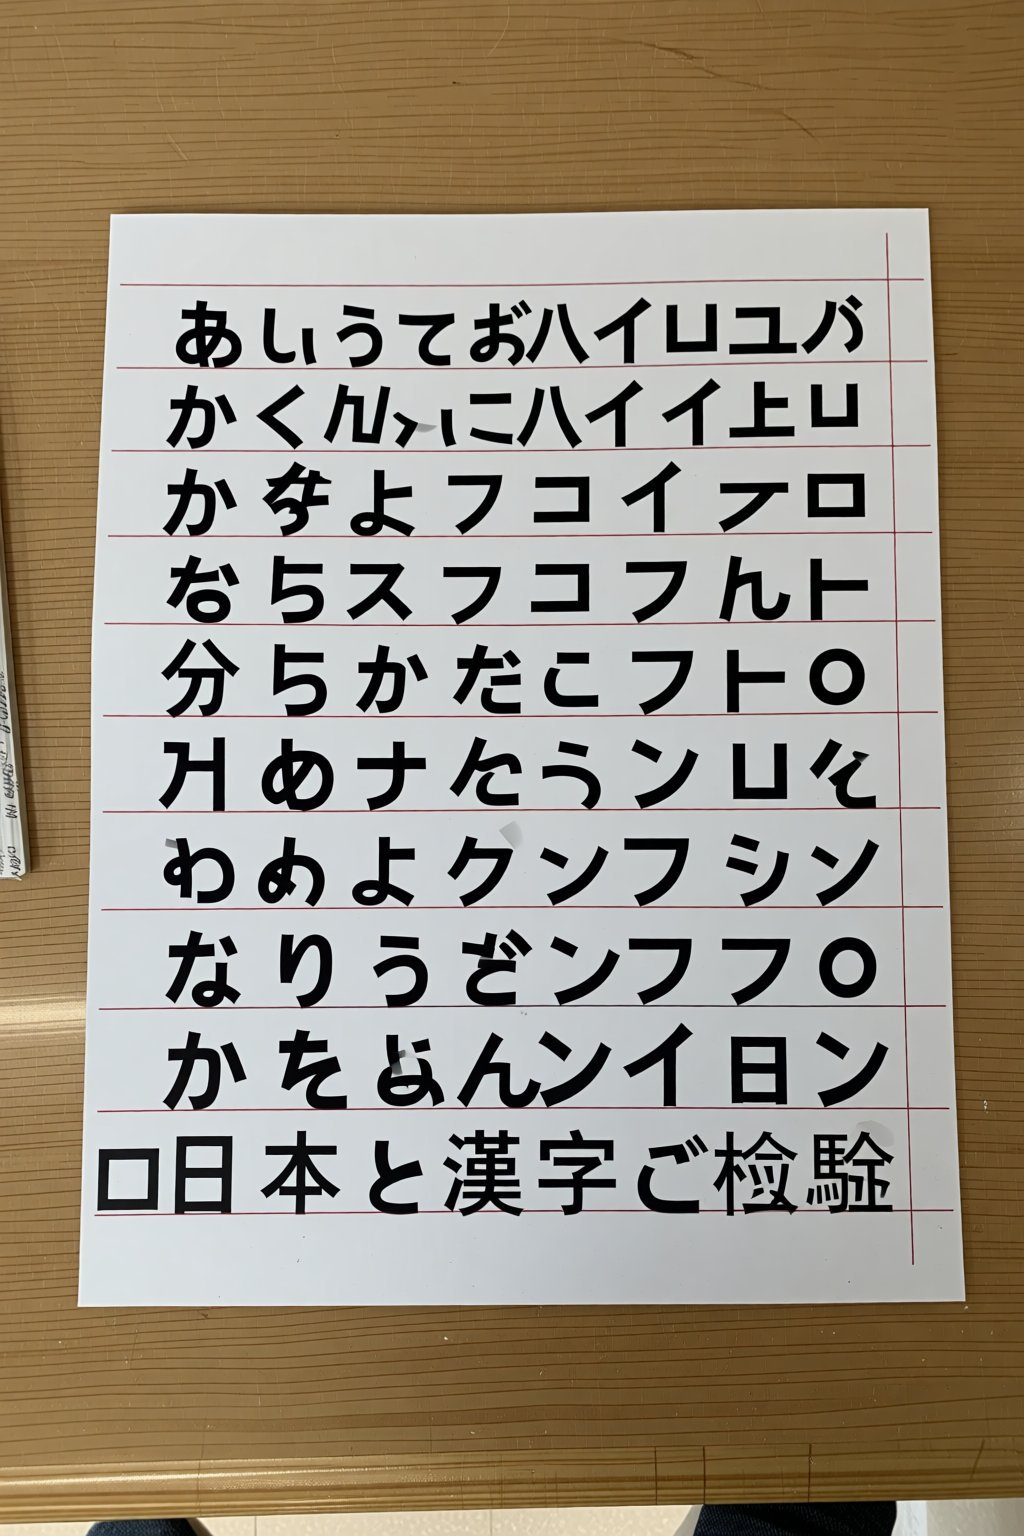 あしいうておハイロユバ
かくんにハイイ上ロ
かよフコイテロ
ならスフコフんト
分らかだこフトO
めナたうンロ
わめよクンフシン
なりうざンフフO
かをよんンイ日ン
口日本と漢字ご検験